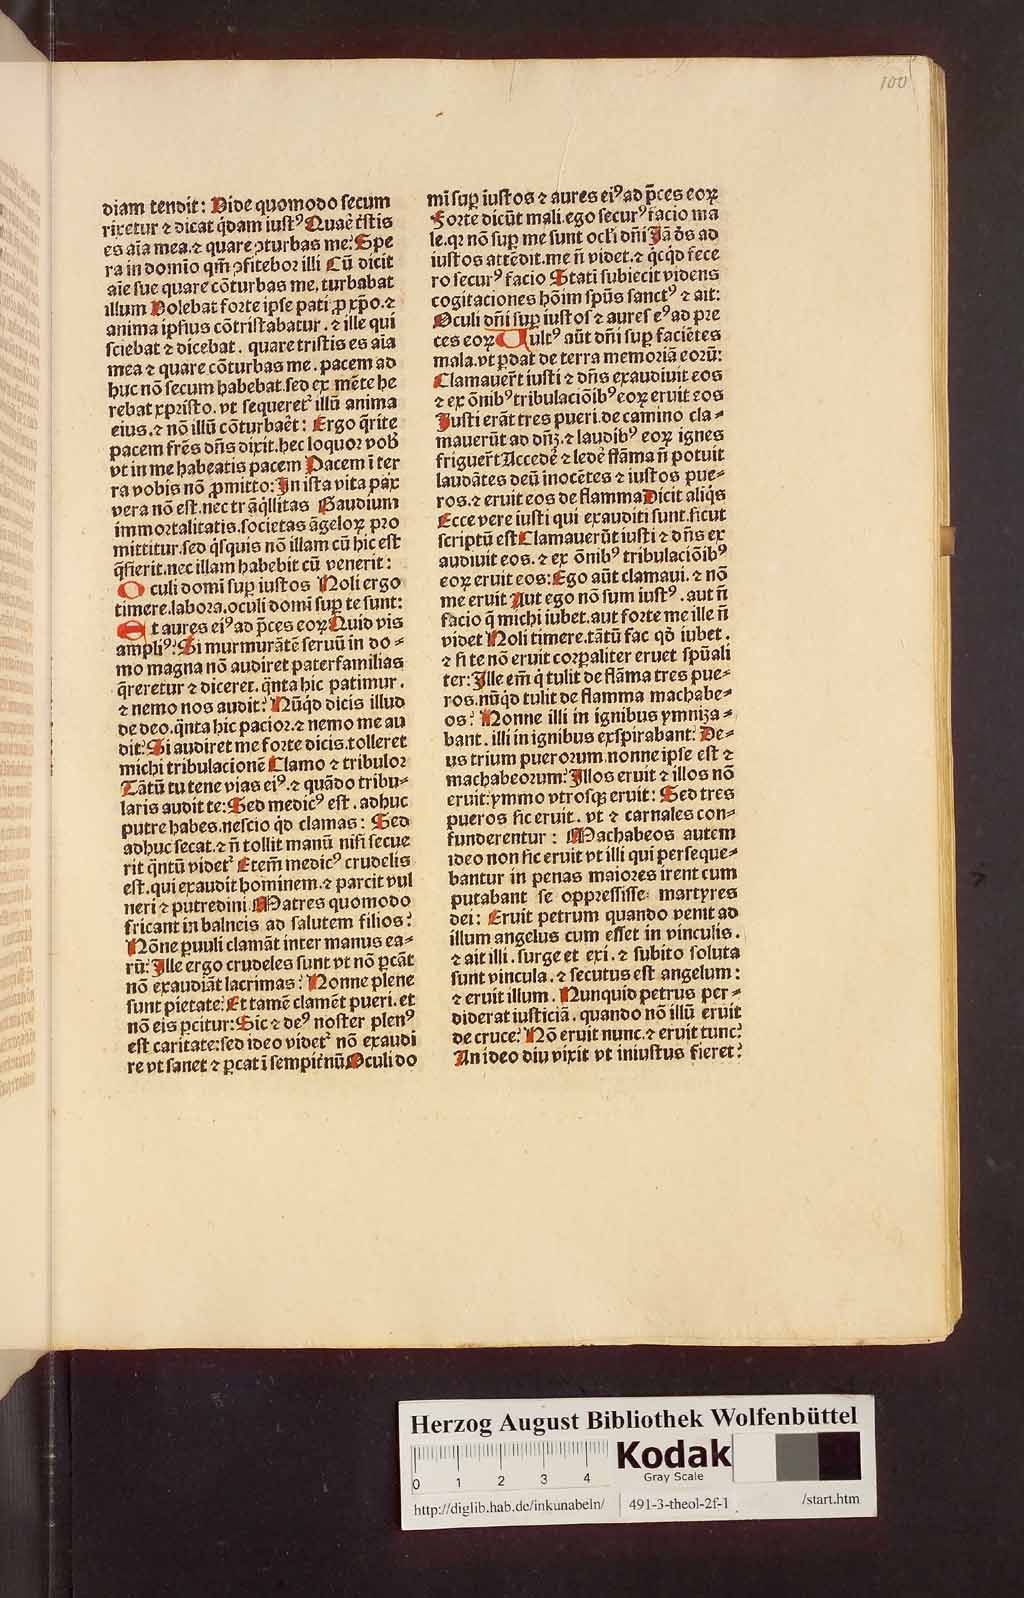 100
diam tendit: Vide quomodo secum
rixetur ⁊ dicat q̇dam iustꝰ Quaē tr̄stis
es aīa mea.⁊ quare ↄturbas me: Spe
ra in domīo qm̄ ↄfitebor illi Cū dicit
aīe sue quare cōturbas me. turbabat
illum Nolebat forte ipse pati ꝓ xp̄o.⁊
anima ipsius cōtristabatur.⁊ ille qui
sciebat ⁊ dicebat. quare tristis es aīa
mea ⁊ quare cōturbas me. pacem ad
huc nō secum habebat.sed ex mēte he
rebat xpristo. vt sequeretᷣ illū anima
eius.⁊ nō illū cōturbaēt: Ergo q̄rite
pacem fr̄es dn̄s dixit.hec loquor vob̄
vt in me habeatis pacem Pacem ī ter
ra vobis nō ꝓmitto: In ista vita pax
vera nō est.nec trāq̇llitas Gaudium
immortalitatis.societas āgeloꝝ pro
mittitur.sed q̇squis nō illam cū hic est
q̄sierit.nec illam habebit cū venerit:
Oculi domi suꝑ iustos Noli ergo
timere.labora.oculi domī suꝑ te sunt:
Et aures eiꝰ ad p̄ces eoꝝ Quid vis
ampliꝰ: Si murmurātē seruū in do⸗
mo magna nō audiret paterfamilias
q̄reretur ⁊ diceret. q̄nta hic patimur.
⁊ nemo nos audit? Nūq̇d dicis illud
de deo. q̄nta hic pacior.⁊ nemo me au
dit? Si audiret me forte dicis.tolleret
michi tribulacionē Clamo ⁊ tribulor
Tātū tu tene vias eiꝰ.⁊ quādo tribu⸗
laris audit te: Sed medicꝰ est. adhuc
putre habes.nescio q̇d clamas: Sed
adhuc secat.⁊ n̄ tollit manū nisi secue
rit q̄ntū videtᷣ Etem̄ medicꝰ crudelis
est.qui exaudit hominem.⁊ parcit vul
neri ⁊ putredini Matres quomodo
fricant in balneis ad salutem filios?
Nōne ꝑuuli clamāt inter manus ea⸗
rū? Ille ergo crudeles sunt vt nō ꝑcāt
nō exaudiāt lacrimas? Nonne plene
sunt pietate? Et tamē clamēt pueri. et
nō eis ꝑcitur: Sic ⁊ deꝰ noster plenꝰ
est caritate:sed ideo videtᷣ nō exaudi
re vt sanet ⁊ ꝑcat ī sempit̄nū Oculi do
mī suꝑ iustos ⁊ aures eiꝰ ad p̄ces eoꝝ
Forte dicūt mali.ego securꝰ facio ma
le.qꝛ nō suꝑ me sunt oclī dn̄i Iā ds̄ ad
iustos attēdit.me n̄ videt.⁊ q̇cq̇d fece
ro securꝰ facio Stati subiecit videns
cogitaciones hōim spūs sanctꝰ ⁊ ait:
Oculi dn̄i suꝑ iustos ⁊ aures eꝰ ad pre
ces eoꝝ Uultꝰ aūt dn̄i suꝑ faciētes
mala.vt ꝑdat de terra memoriā eorū:
Clamauer̄t iusti ⁊ dn̄s exaudiuit eos
⁊ ex ōnibꝰ tribulaciōibꝰ eoꝝ eruit eos
Iusti erāt tres pueri.de camino cla⸗
mauerūt ad dn̄ꝫ.⁊ laudibꝰ eoꝝ ignes
friguer̄t Accedē ⁊ ledē flāma n̄ potuit
laudātes deū inocētes ⁊ iustos pue⸗
ros.⁊ eruit eos de flamma Dicit aliq̇s
Ecce vere iusti qui exauditi sunt.sicut
scriptū est Clamauerūt iusti ⁊ dn̄s ex
audiuit eos. ⁊ ex ōnibꝰ tribulaciōibꝰ
eoꝝ eruit eos: Ego aūt clamaui. ⁊ nō
me eruit Aut ego nō sum iustꝰ. aut n̄
facio q̄ michi iubet.aut forte me ille n̄
videt Noli timere.tātū fac qd̄ iubet.
⁊ si te nō eruit corꝑaliter eruet spūali
ter: Ille em̄ q̇ tulit de flāma tres pue⸗
ros.nūq̇d tulit de flamma machabe⸗
os? Nonne illi in ignibus ymniza⸗
bant. illi in ignibus exspirabant? De⸗
us trium puerorum.nonne ipse est ⁊
machabeorum? Illos eruit ⁊ illos nō
eruit:ymmo vtrosqꝫ eruit: Sed tres
pueros sic eruit. vt ⁊ carnales con⸗
funderentur: Machabeos autem
ideo non sic eruit vt illi qui perseque⸗
bantur in penas maiores irent cum
putabant se oppressisse martyres
dei: Eruit petrum quando venit ad
illum angelus cum esset in vinculis.
⁊ ait illi. surge et exi. ⁊ subito soluta
sunt vincula. ⁊ secutus est angelum:
⁊ eruit illum. Nunquid petrus per⸗
diderat iusticiā. quando nō illū eruit
de cruce? Nō eruit nunc.⁊ eruit tunc?
An ideo diu vixit vt iniustus fieret?
Herzog August Bibliothek Wolfenbüttel
0 1 2 3 4
Kodak
Gray Scale
http://diglib.hab.de/inkunabeln/ 491-3-theol-2f-1 /start.htm